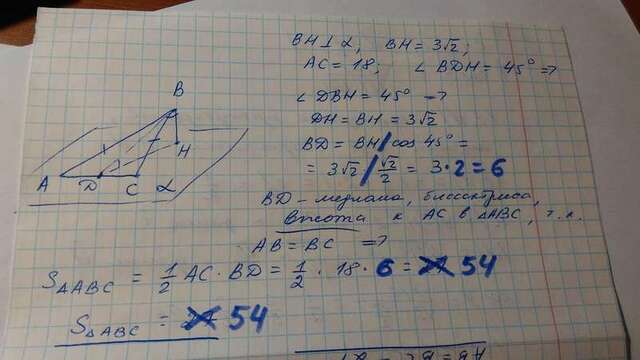 BH ⊥ α, BH = 3√2;
AC = 18; ∠ BDH = 45° =>
∠ DBH = 45° =>
DH = BH = 3√2
BD = BH / cos 45° =
= 3√2 / √2/2 = 3 · 2 = 6
BD – медиана, биссектриса,
высота к AC в ΔABC, т.к.
AB = BC =>
SΔABC = 1/2 AC · BD = 1/2 · 18 · 6 = 54
SΔABC = 54
B
H
A
D
C
α